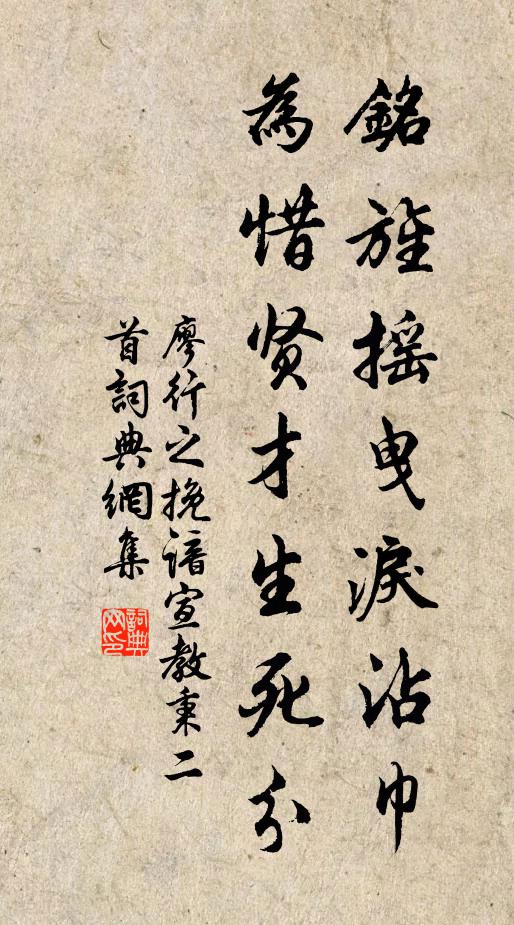 銘旌摇曳淚沾巾
為惜贤才生死分
廖行之挽諳宣教秉二
首詞典網集
詞典
网印